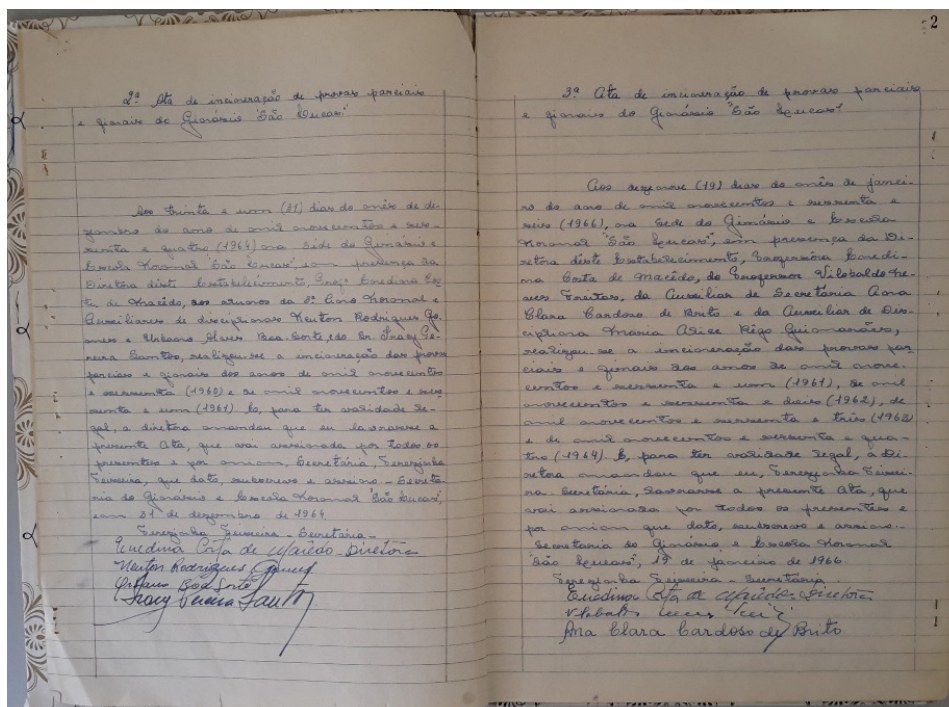 2ª Ata de incineração de provas parciais
e finais do Ginásio "São Lucas".
Aos trinta e um (31) dias do mês de de-
zembro do ano de mil novecentos e ses-
senta e quatro (1964) na sede do Ginásio e
Escola Normal "São Lucas", em presença da
Diretora dêste Estabelecimento, Profª Enedina Cos-
ta de Macêdo, aos alunos da 2º Ano Normal e
Auxiliares de disciplinas Newton Rodrigues Go-
mes e Urbano Alves Boa-Sorte, do Sr. Iracy Pe-
reira Santos, realizou-se a incineração das provas
parciais e finais dos anos de mil novecentos
e sessenta (1960) e de mil novecentos e ses-
senta e um (1961) E, para ter validade le-
gal, a diretora mandou que eu lavrasse a
presente Ata, que vai assinada por todos os
presentes e por mim, Secretária, Terezinha
Teixeira, que dato, subscrevo e assino. - Secretá-
ria do Ginásio e Escola Normal "São Lucas",
em 31 de dezembro de 1964.
Terezinha Teixeira - Secretária -
Enedina Costa de Macêdo - Diretora
Newton Rodrigues Gomes
Urbano Boa Sorte
Iracy Pereira Santos
2
3ª Ata de incineração de provas parciais
e finais do Ginásio "São Lucas".
Aos dezenove (19) dias do mês de janei-
ro do ano de mil novecentos e sessenta e
seis (1966), na sede do Ginásio e Escola
Normal "São Lucas", em presença da Di-
retora dêste Estabelecimento, Professôra Enedi-
na Costa de Macêdo, do Professor Vilobaldo Ne-
ves Freitas, da Auxiliar de Secretária Ana
Clara Cardoso de Brito e da Auxiliar de Dis-
ciplina Maria Alice Rêgo Guimarães,
realizou-se a incineração das provas par-
ciais e finais dos anos de mil nove-
centos e sessenta e um (1961), de mil
novecentos e sessenta e dois (1962), de
mil novecentos e sessenta e três (1963)
e de mil novecentos e sessenta e qua-
tro (1964). E, para ter validade legal, a Di-
retora mandou que eu, Terezinha Teixei-
ra - Secretária, lavrasse a presente Ata, que
vai assinada por todos os presentes e
por mim que dato, subscrevo e assino.
Secretaria do Ginásio e Escola Normal
"São Lucas", 19 de janeiro de 1966.
Terezinha Teixeira - Secretária
Enedina Costa de Macêdo - Diretora
Ana Clara Cardoso de Brito